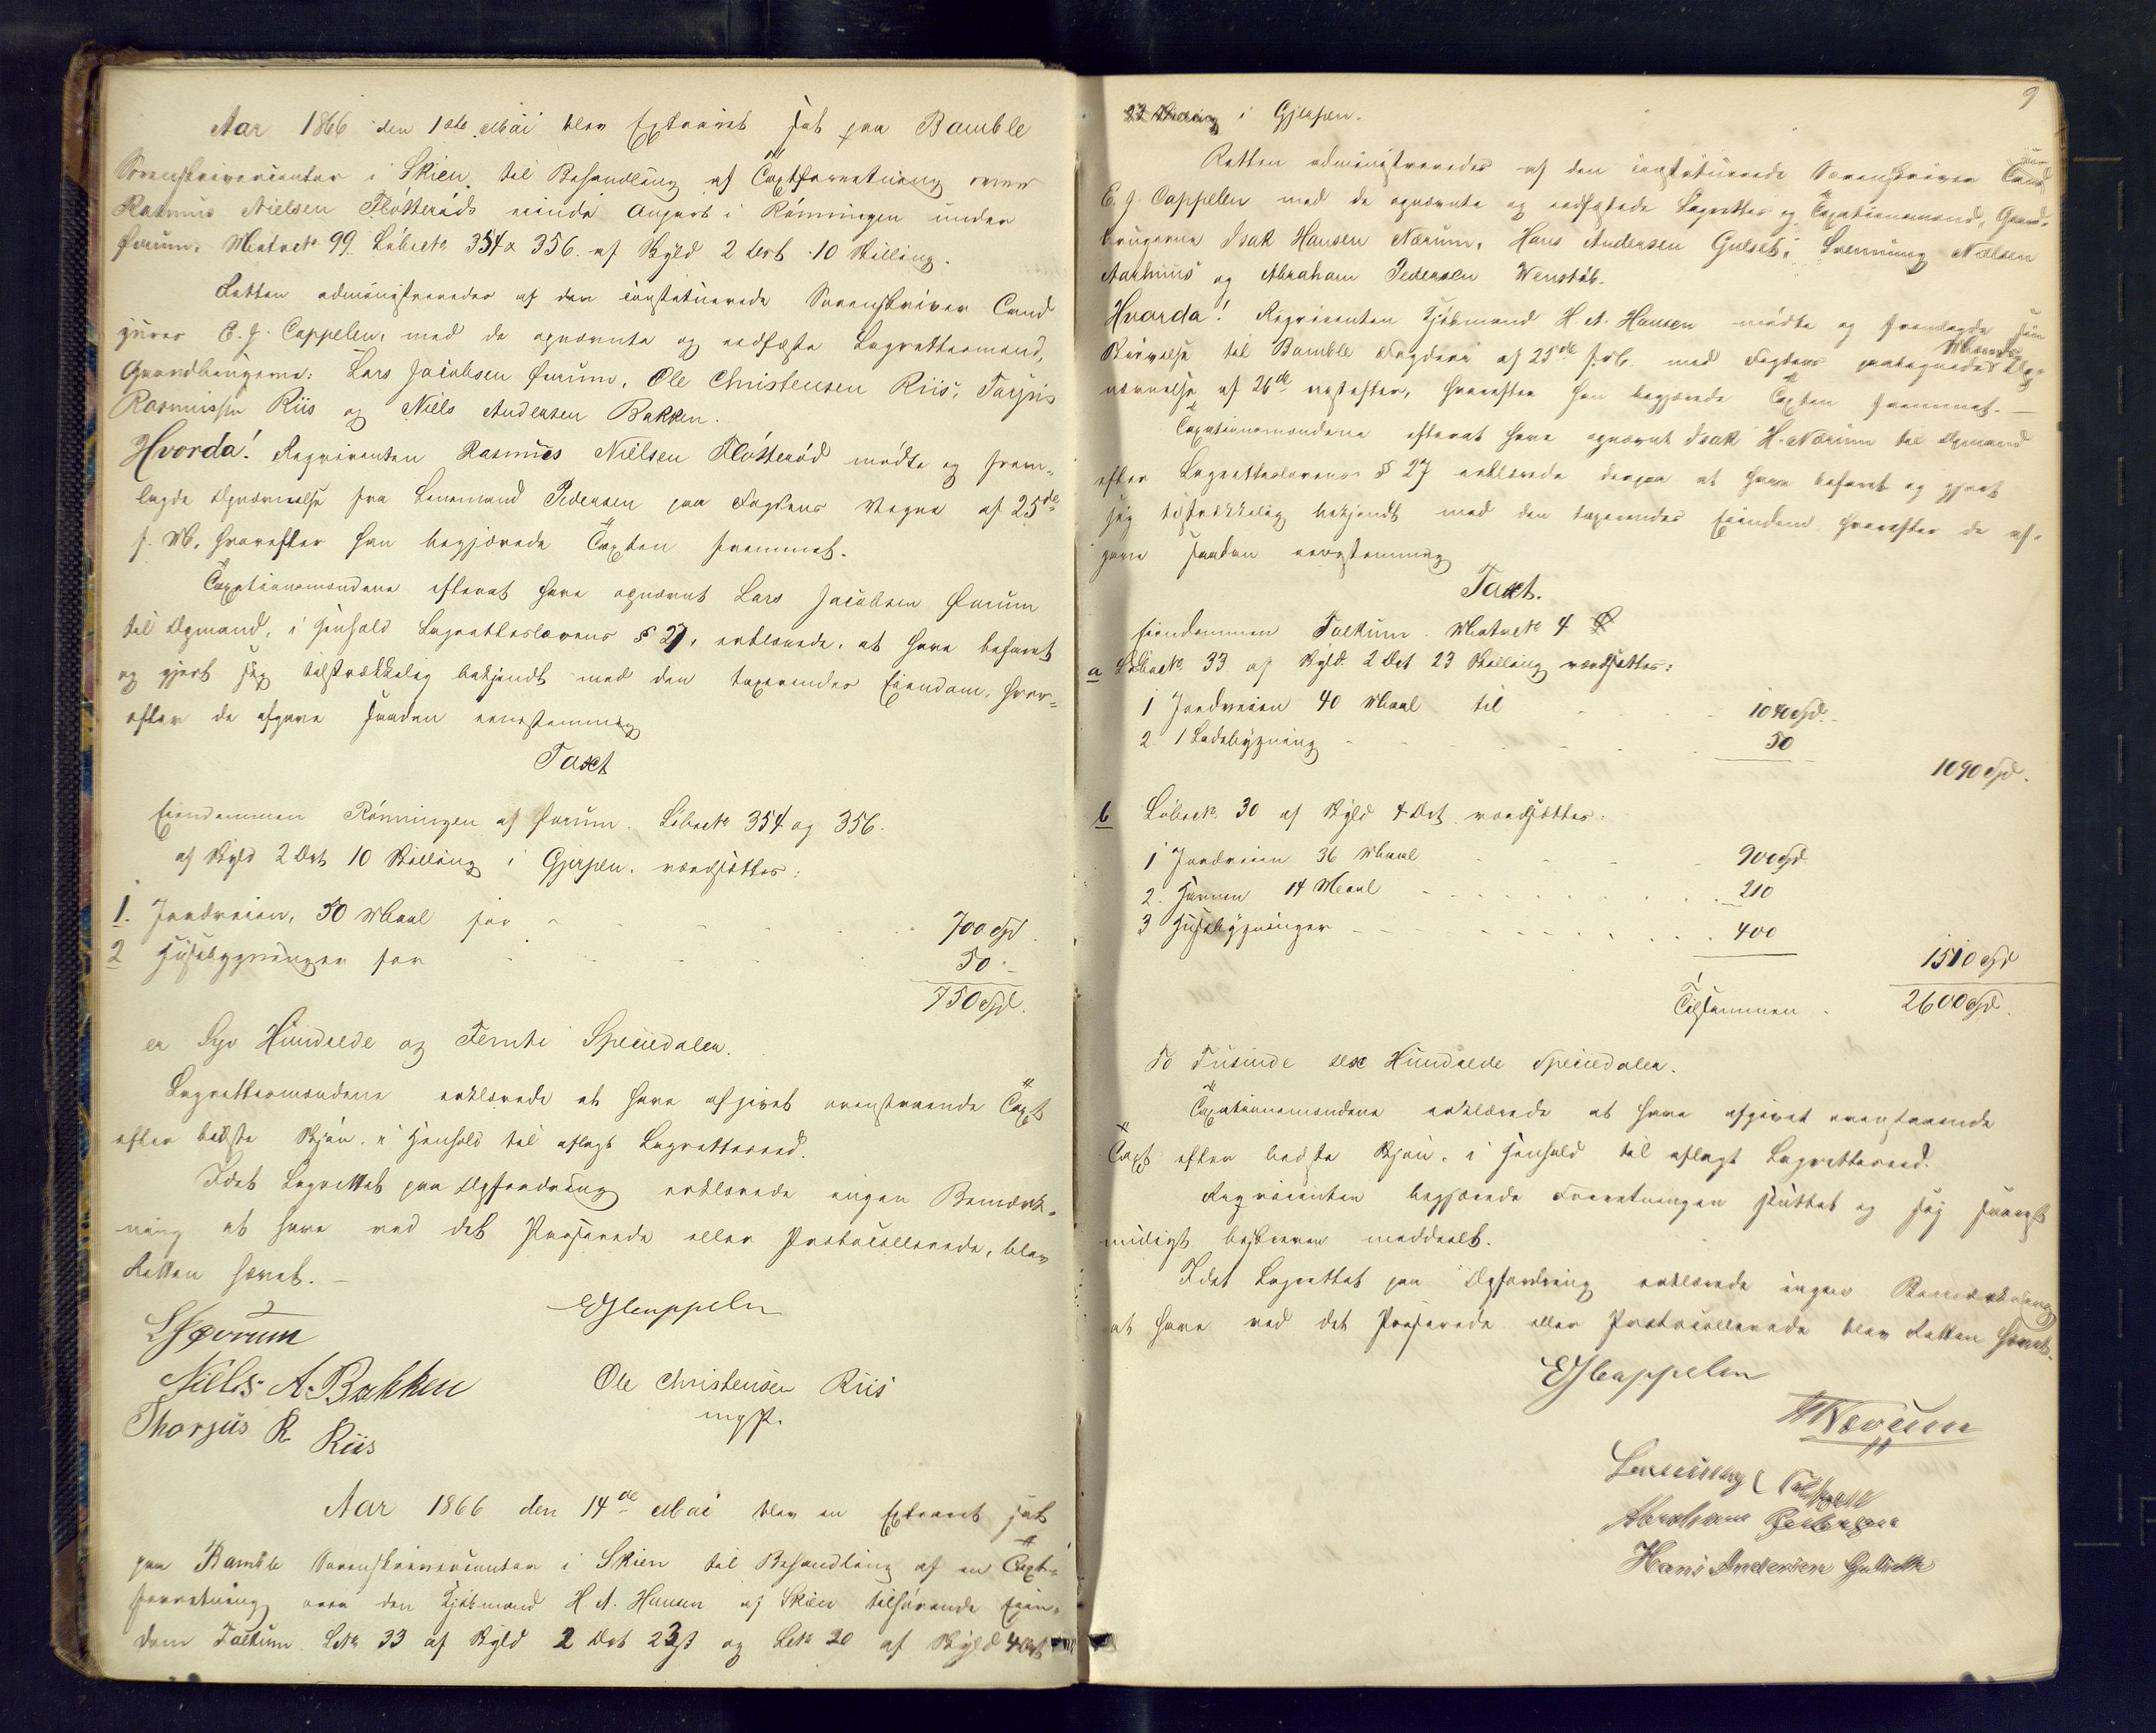 Aar 1866 den 1ste Mai blev Extraret sat paa Bamble
Sorenskrivercontor i Skien til Behandling af Taxtforretning over
Rasmus Nielsen Fløtterøds Part i Rønningen under
Førum, Matrno 99 Løbeno 354 & 356 af Skyld 2 Ort 10 Skilling.
Retten administreredes af den constituerede Sorenskriver Cand
jures E. J. Cappelen, med de opnævnte og edfæste Lagrettesmænd,
Gaardbrugerne: Lars Jacobsen Førum, Ole Christensen Riis, Torjus
Rasmussen Riis og Niels Andersen Bakken.
Hvorda! Reqvirenten Rasmus Nielsen Fløtterød mødte og frem-
lagde Opnævnelse fra Lensmand Pedersen paa Fogdens Vegne af 25de
f. M., hvorefter han begjærede Taxten fremmet.
Taxationsmændene efterat have opnævnt Lars Jacobsen Førum
til Opmand, i Henhold Lagretteslovens § 27, erklærede, at have befaret
og gjort sig tilstrækkelig bekjendt med den taxerendes Eiendom, hvor-
efter de afgave saadan eenstemmig
Taxt
Eiendommen Rønningen af Førum. Løbeno 354 og 356.
af Skyld 2 Ort 10 Skilling i Gjerpen, værdsættes:
1. Jordveien, 50 Maal for 700 Spd.
2 Husebygninger for 50 -
750 Spd.
er Syv Hundrede og Femti Speciedaler.
Lagrettesmændene erklærede at have afgivet ovenstaaende Taxt
efter bedste Skjøn, i Henhold til aflagt Lagretteseed.
Idet Lagrettet paa Opfordring erklærede ingen Bemærk-
ning at have ved det Passerede eller Protocollerede, blev
Retten hævet. —
EJCappelen
LJFørum
Niels A. Bakken
Ole Christensen Riis
mgP.
Thorjus R Riis
Aar 1866 den 14de Mai blev en Extraret sat
paa Bamble Sorenskrivercontor i Skien til Behandling af en Taxt-
forretning over den Kjøbmand H A. Hansen af Skien tilhørende Eien-
dom Foekum LNo 33 af Skyld 2 Ort 23 s og LNo 30 af Skyld 4 Ort
9
i Gjerpen.
Retten administreredes af den constituerede Sorenskriver Cand jur
E. J. Cappelen med de opnævnte og edfæstede Lagrettes og Taxationsmænd, Gaard-
brugerne Isak Hansen Nærum, Hans Andersen Gulset, Svenning Nielsen
Aarhuus og Abraham Pedersen Wenstøb.
Hvorda! Reqvirenten Kjøbmand H. A. Hansen mødte og fremlagde sin
Skrivelse til Bamble Fogderi af 25de f. M. med Fogdens paategnede Mænds Op-
nævnelse af 26de næstefter, hvorefter han begjærede Taxten fremmet. —
Taxationsmændene efterat have opnævnt Isak H. Nærum til Opmand
efter Lagretteslovens § 27 erklærede derpaa at have befaret og gjort
sig tilstrækkelig bekjendt med den taxerendes Eiendom hvorefter de af-
gave saadan eenstemmig
Taxt.
Eiendommen Foekum Matrno 4
a Løbeno 33 af Skyld 2 Ort 23 Skilling værdsættes:
1 Jordveien 40 Maal til 1040 Spd.
2. 1 Ladebygning 50
1090 Spd.
b Løbeno 30 af Skyld 4 Ort værdsættes:
1 Jordveien 36 Maal 900 Spd
2. Havnen 14 Maal 210
3 Husebygninger 400
1510 Spd
Tilsammen 2600 Spd.
To Tusinde sex Hundrede Speciedaler.
Taxationsmændene erklærede at have afgivet ovenstaaende
Taxt efter bedste Skjøn, i Henhold til aflagt Lagretteseed.
Reqvirenten begjærede Forretningen sluttet og sig snarest
muligt beskreven meddeelt.
Idet Lagrettet paa Opfordring erklærede ingen Bemærkning
at have ved det Passerede eller Protocollerede blev Retten hævet.
EJCappelen
Nærum
Svenning
Abraham Pedersen
Hans Andersen Gulseth